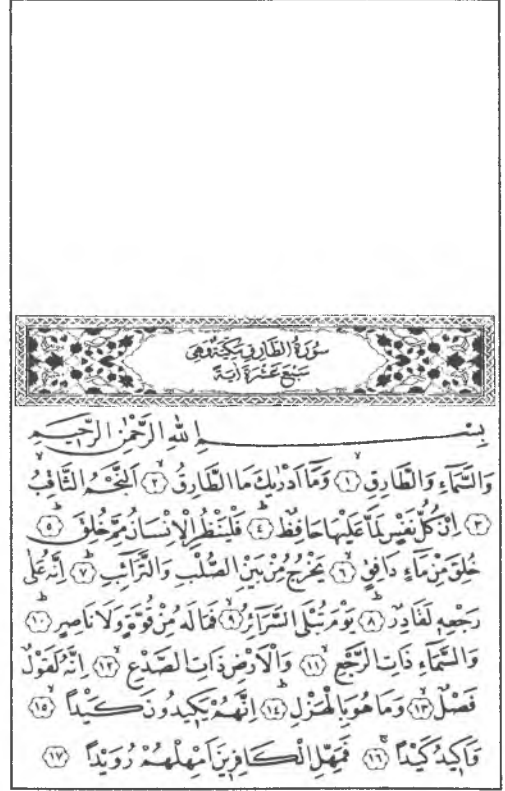 سُورَةُ الطَّارِقِ مَكِّيَّةٌ وَهِيَ
سَبْعَ عَشْرَةَ اٰيَةً
بِسْمِ اللهِ الرَّحْمٰنِ الرَّحِيمِ
وَالسَّمَٓاءِ وَالطَّارِقِۙ ﴿١﴾ وَمَٓا اَدْرٰيكَ مَا الطَّارِقُۙ ﴿٢﴾ اَلنَّجْمُ الثَّاقِبُۙ
﴿٣﴾ اِنْ كُلُّ نَفْسٍ لَمَّا عَلَيْهَا حَافِظٌۜ ﴿٤﴾ فَلْيَنْظُرِ الْاِنْسَانُ مِمَّ خُلِقَۜ ﴿٥﴾
خُلِقَ مِنْ مَٓاءٍ دَافِقٍۙ ﴿٦﴾ يَخْرُجُ مِنْ بَيْنِ الصُّلْبِ وَالتَّرَٓائِبِۜ ﴿٧﴾ اِنَّهُ عَلٰى
رَجْعِهٖ لَقَادِرٌۜ ﴿٨﴾ يَوْمَ تُبْلَى السَّرَٓائِرُۙ ﴿٩﴾ فَمَا لَهُ مِنْ قُوَّةٍ وَلَا نَاصِرٍۜ ﴿١٠﴾
وَالسَّمَٓاءِ ذَاتِ الرَّجْعِۙ ﴿١١﴾ وَالْاَرْضِ ذَاتِ الصَّدْعِۙ ﴿١٢﴾ اِنَّهُ لَقَوْلٌ
فَصْلٌۙ ﴿١٣﴾ وَمَا هُوَ بِالْهَزْلِۜ ﴿١٤﴾ اِنَّهُمْ يَكِيدُونَ كَيْدًاۙ ﴿١٥﴾
وَاَكِيدُ كَيْدًاۚ ﴿١٦﴾ فَمَهِّلِ الْكَافِرِينَ اَمْهِلْهُمْ رُوَيْدًا ﴿١٧﴾